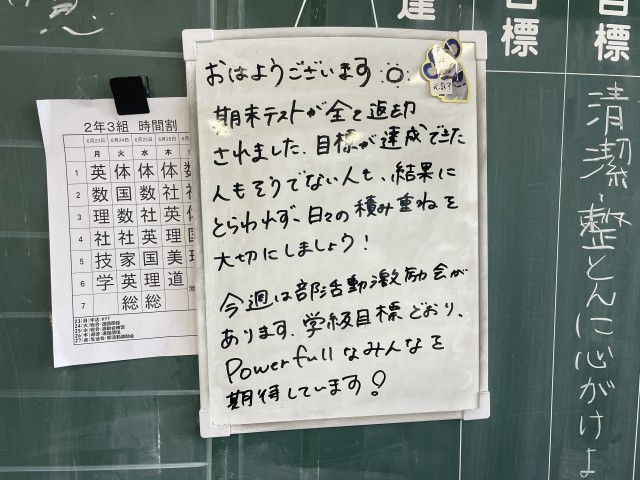 目標
目標
清潔、整とんに心がけよ
おはようございます
元気
期末テストが全て返却
されました。目標が達成できた
人もそうでない人も、結果に
とらわれず、日々の積み重ねを
大切にしましょう!
今週は部活動激励会が
あります。学級目標どおり、
Powerfullなみんなを
期待しています!
2年3組 時間割
6月23日 6月24日 6月25日 6月26日
月 火 水 木
1 英 体 体 体 数
2 数 国 数 社
3 理 数 社 英
4 社 社 英 理
5 技 家 国 美
6 学 英 理 道
7 総 総